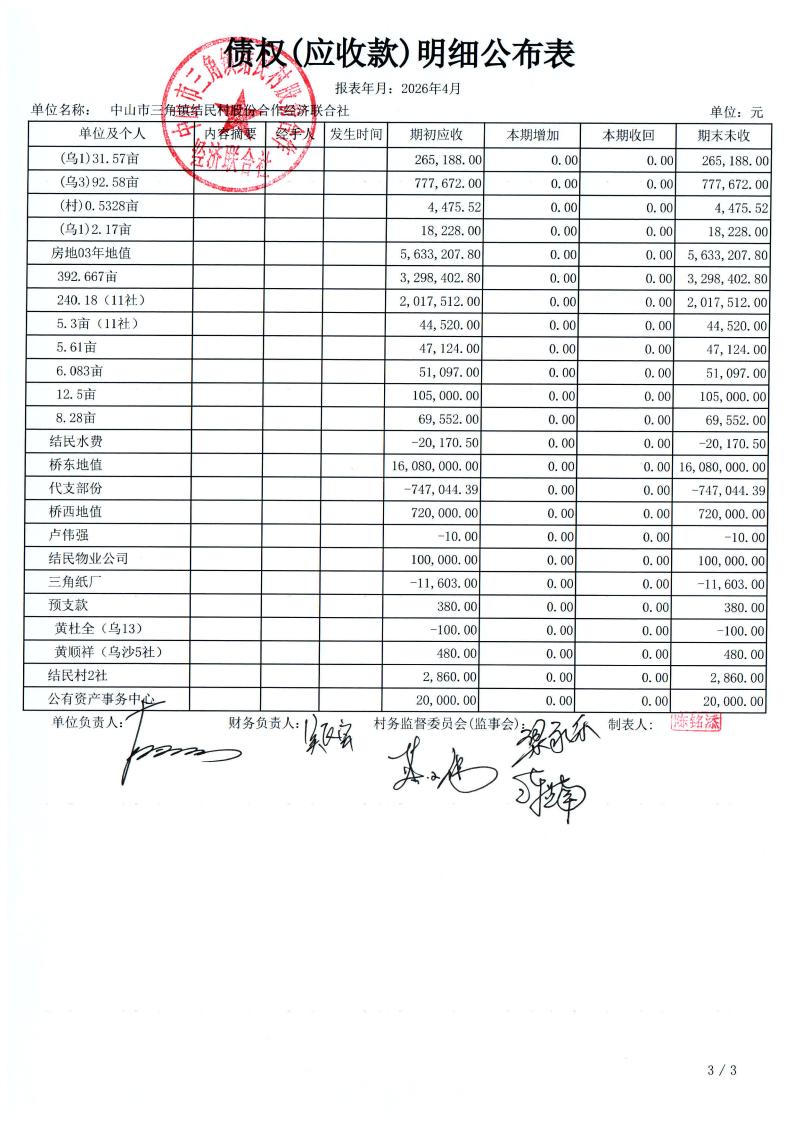 债权(应收款)明细公布表
报表年月：2026年4月
单位名称： 中山市三角镇结民村股份合作经济联合社 单位：元
单位及个人 内容摘要 经手人 发生时间 期初应收 本期增加 本期收回 期末未收
(乌1)31.57亩 265,188.00 0.00 0.00 265,188.00
(乌3)92.58亩 777,672.00 0.00 0.00 777,672.00
(村)0.5328亩 4,475.52 0.00 0.00 4,475.52
(乌1)2.17亩 18,228.00 0.00 0.00 18,228.00
房地03年地值 5,633,207.80 0.00 0.00 5,633,207.80
392.667亩 3,298,402.80 0.00 0.00 3,298,402.80
240.18（11社） 2,017,512.00 0.00 0.00 2,017,512.00
5.3亩（11社） 44,520.00 0.00 0.00 44,520.00
5.61亩 47,124.00 0.00 0.00 47,124.00
6.083亩 51,097.00 0.00 0.00 51,097.00
12.5亩 105,000.00 0.00 0.00 105,000.00
8.28亩 69,552.00 0.00 0.00 69,552.00
结民水费 -20,170.50 0.00 0.00 -20,170.50
桥东地值 16,080,000.00 0.00 0.00 16,080,000.00
代支部份 -747,044.39 0.00 0.00 -747,044.39
桥西地值 720,000.00 0.00 0.00 720,000.00
卢伟强 -10.00 0.00 0.00 -10.00
结民物业公司 100,000.00 0.00 0.00 100,000.00
三角纸厂 -11,603.00 0.00 0.00 -11,603.00
预支款 380.00 0.00 0.00 380.00
黄杜全（乌13） -100.00 0.00 0.00 -100.00
黄顺祥（乌沙5社） 480.00 0.00 0.00 480.00
结民村2社 2,860.00 0.00 0.00 2,860.00
公有资产事务中心 20,000.00 0.00 0.00 20,000.00
单位负责人： 财务负责人： 村务监督委员会(监事会)： 制表人： 陈铭添
中山市三角镇结民村股份合作
经济联合社
3 / 3